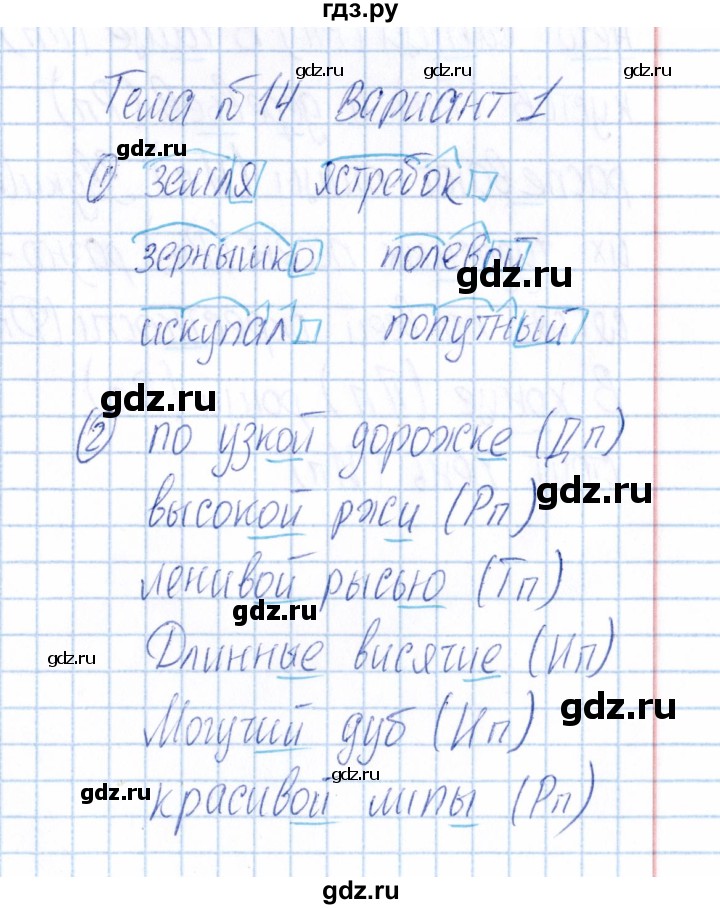 гдз.ру
gdz.ru gdz.ru
Тема №14 Вариант 1
gdz.ru
① земля ястребок
gdz.ru gdz.ru
зернышко полевой
gdz.ru
искупал попутный
gdz.ru
② по узкой дорожке (Дп)
gdz.ru
высокой ржи (Рп)
ленивой рысью (Тп)
gdz.ru
gdz.ru
Длинные висячие (Ип)
gdz.ru
Могучий дуб (Ип)
gdz.ru
gdz.ru
красивой липы (Рп)
gdz.ru
gdz.ru